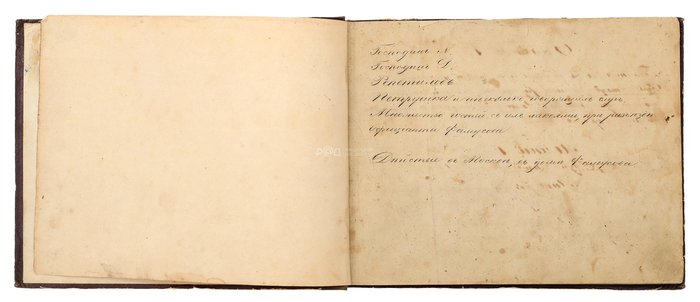 Господинъ N.
Господинъ D.
Репетиловъ
Петрушка и несколько говорящихъ слугъ
Множество гостей съ ихъ лакеями при разъезде
официанты Фамусова
Действие въ Москве, въ доме Фамусова